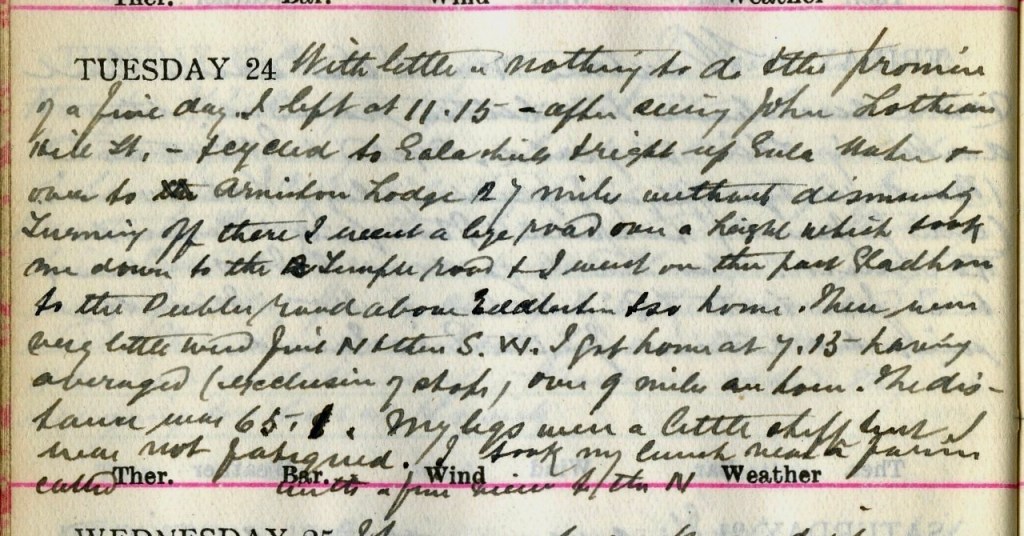 Ther. Bar. Wind Weather
TUESDAY 24 With little or nothing to do & the promise
of a fine day. I left at 11.15 - after seeing John Lothian
Hill St. - & cycled to Galashiels & right up Gala Water &
over to Arniston Lodge 27 miles without dismounting
Turning off there I went a bye road over a height which took
me down to the Temple road & I went on then past Gladhouse
to the Peebles road above Eddleston & so home. There was
very little wind first N & then S. W. I got home at 7.15 having
averaged (exclusive of stops) over 9 miles an hour. The dis-
tance was 65. My legs were a little stiff but I
was not fatigued. I took my lunch near a farm
called with a fine view to the N
Ther. Bar. Wind Weather
WEDNESDAY 25